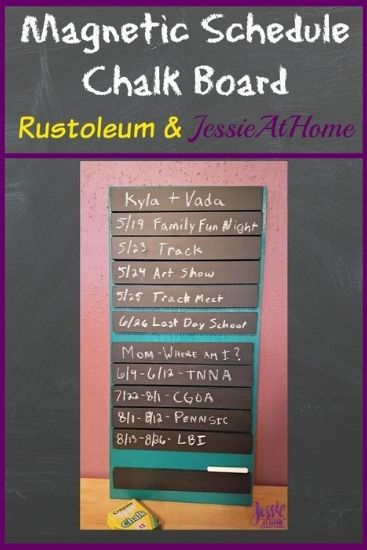 Magnetic Schedule
Chalk Board
Rustoleum & JessieAtHome
Kyla + Vada
5/19 Family Fun Night
5/23 Track
5/24 Art Show
5/25 Track Meet
6/26 Last Day School
Mom - Where am I?
6/9 - 6/12 - TNNA
7/22 - 8/1 - CGOA
8/1 - 8/12 - Pennsic
8/13 - 8/26 - LBI
Crayola
Chalk
12
Jessie
AT HOME